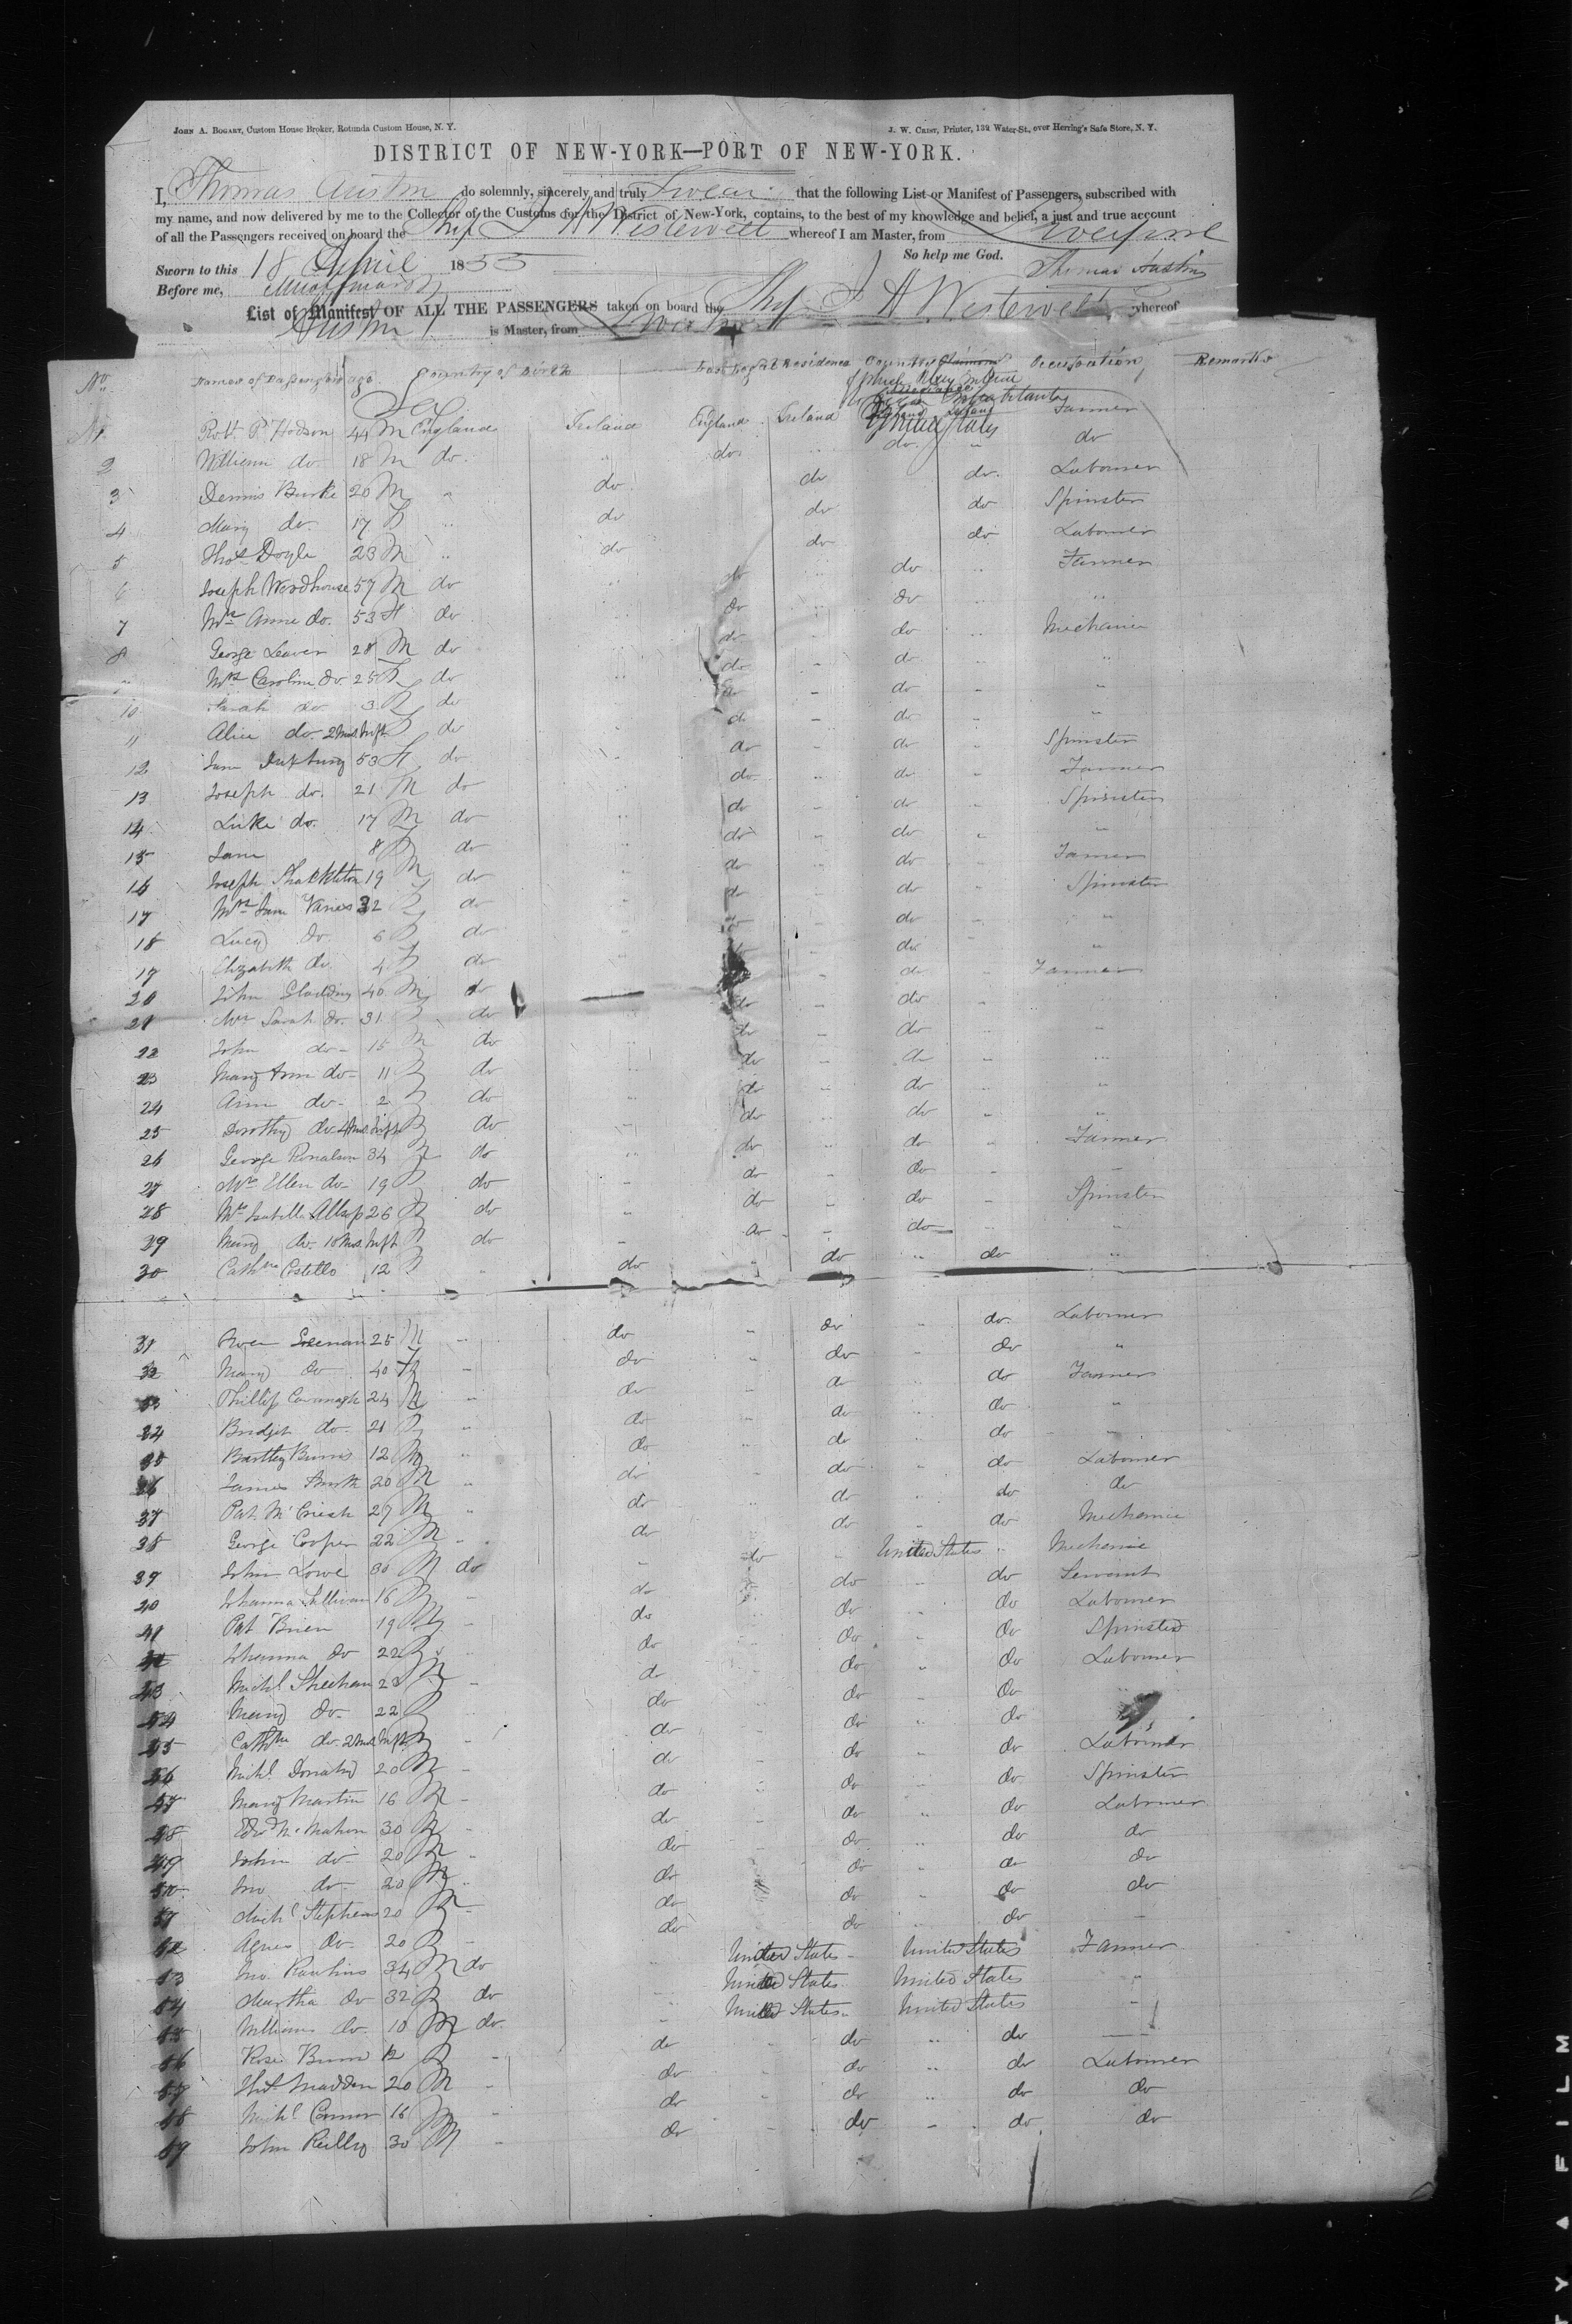 JOHN A. BOGART, Custom House Broker, Rotunda Custom House, N. Y.
J. W. CRIST, Printer, 132 Water-St., over Herring's Safe Store, N. Y.
DISTRICT OF NEW-YORK—PORT OF NEW-YORK.
I, Thomas Austin do solemnly, sincerely and truly Swear that the following List or Manifest of Passengers, subscribed with
my name, and now delivered by me to the Collector of the Customs for the District of New-York, contains, to the best of my knowledge and belief, a just and true account
of all the Passengers received on board the Ship J A Westervelt whereof I am Master, from Liverpool
So help me God.
Sworn to this 18 April 1855 Thomas Austin
Before me,
List of Manifest OF ALL THE PASSENGERS taken on board the Ship J A Westervelt whereof
Austin is Master, from Liverpool
No. Names of Passengers age Sex Country of Birth Last legal Residence Country of which they intend Inhabitants Occupation Remarks
Ireland England Ireland United States
1 Robt P. Hodson 44 M England Farmer
2 William do 18 M do. do do. do
3 Dennis Burke 20 M do do do. Labourer
4 Mary do. 17 F do do do Spinster
5 Thos Doyle 23 M do do do Labourer
6 Joseph Woodhouse 57 M do do do Farmer
7 Mrs Anne do. 53 F do do do
8 George Leaver 28 M do do do Mechanic
Mrs Caroline do. 25 F do do do
10 Sarah do 3 F do do do
11 Alice do. 2 Mos. Inft F do do do
12 Jane 53 F do do do Spinster
13 Joseph do. 21 M do do do Farmer
14 Luke do. 17 M do do do Spinster
15 Jane 8 F do do do
16 Joseph Shackleton 19 M do do do Farmer
17 Mrs Jane 32 F do do do Spinster
18 Lucy do 6 F do do do
19 Elizabeth do 4 F do do do
20 John 40 M do do do Farmer
21 Mrs Sarah do. 31 F do do do
22 John do 15 M do do do
23 Mary Ann do 11 F do do do
24 Ann do 2 F do do do
25 Dorothy do 4 Mos. Inft F do do do
26 George 34 do do do Farmer
27 Mrs Ellen do 19 F do do do
28 Mrs Isabella Allsop 26 F do do do Spinster
29 Mary do. 10 Mos. Inft F do do do
30 Cathne Costello 12 F do do do
31 25 M do do do. Labourer
32 Mary do 40 F do do do
33 Phillip Cavanagh 24 M do do do Farmer
34 Bridget do. 21 F do do do
35 Bartley Burns 12 M do do do
36 James 20 M do do do Labourer
37 Pat. 27 M do do do do
38 George Cooper 22 M do do do Mechanic
39 John Lowe 30 M do do United States Mechanic
40 Johanna Sullivan 16 F do do do Servant
41 Pat Brien 19 M do do do Labourer
42 Johanna do 22 F do do do Spinster
43 Michl Sheehan 23 M do do do Labourer
44 Mary do. 22 F do do do
45 Cathne do. 2 Mos. Inft F do do do
46 Michl 20 M do do do Labourer
47 Mary Martin 16 do do do Spinster
48 Edwd McMahon 30 M do do do Labourer
49 John do 20 M do do do do
50 Jno do 20 M do do do do
51 Michl Stephens 20 M do do do do
52 Agnes do. 20 F do do do
53 Jno. Rawlins 34 M do United States United States Farmer
54 Martha do 32 F do United States United States
55 William do. 10 M do. United States United States
56 Rose 12 F do do do
57 Thos Madden 20 M do do do Labourer
58 Michl Connor 16 M do do do do
59 John Reilly 30 M do do do do